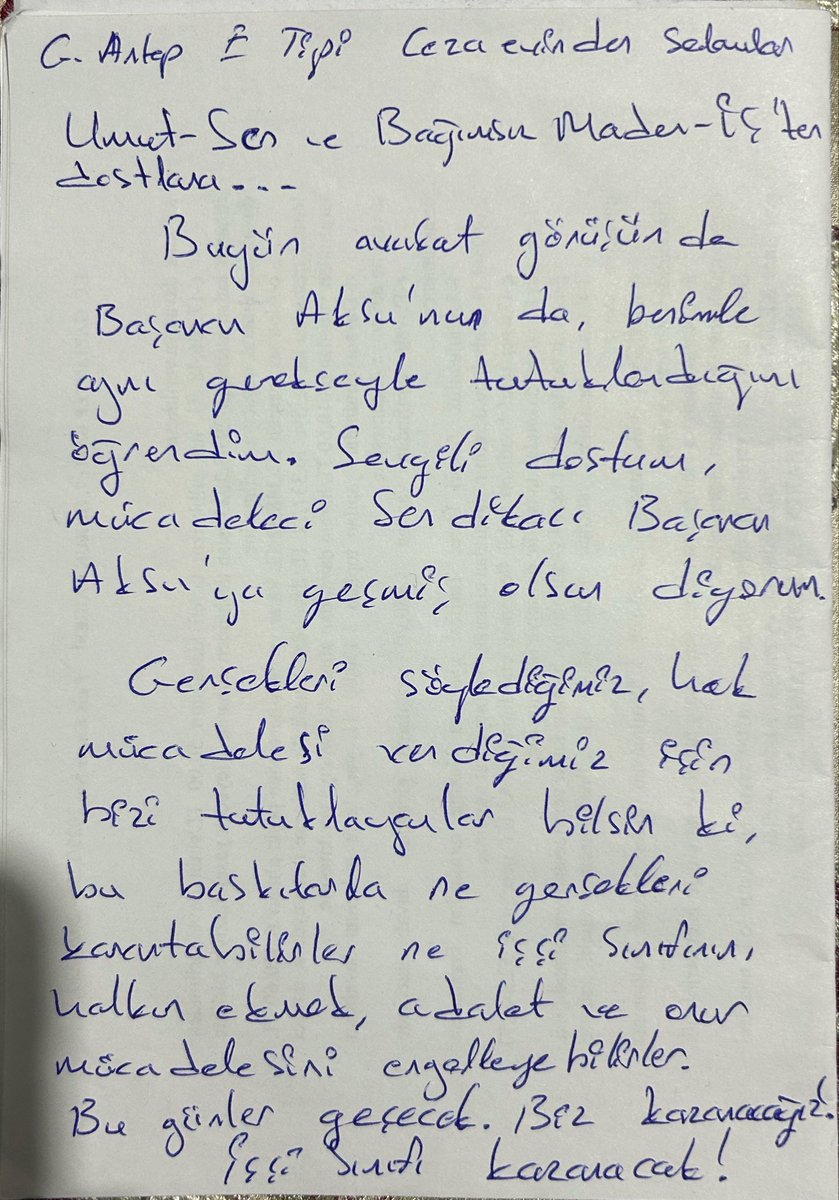 G. Antep E Tipi Cezaevinden Selamlar
Umut-Sen ve Bağımsız Maden-İş'ten
dostlara...
Bugün avukat görüşünde
Başaran Aksu'nun da, benimle
aynı gerekçeyle tutuklandığını
öğrendim. Sevgili dostum,
mücadeleci Sendikacı Başaran
Aksu'ya geçmiş olsun diyorum.
Gerçekleri söylediğimiz, hak
mücadelesi verdiğimiz için
bizi tutuklayanlar bilsin ki,
bu baskılarla ne gerçekleri
karartabilirler ne işçi sınıfının,
halkın ekmek, adalet ve onur
mücadelesini engelleyebilirler.
Bu günler geçecek. Biz kazanacağız!
İşçi Sınıfı kazanacak!